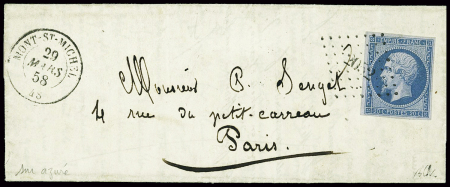 MONT-ST-MICHEL
29
MARS
58
EMPIRE FRANC
20 C POSTES 20 C
Monsieur P. Senget
4 rue du petit-carreau
Paris.
sur azuré